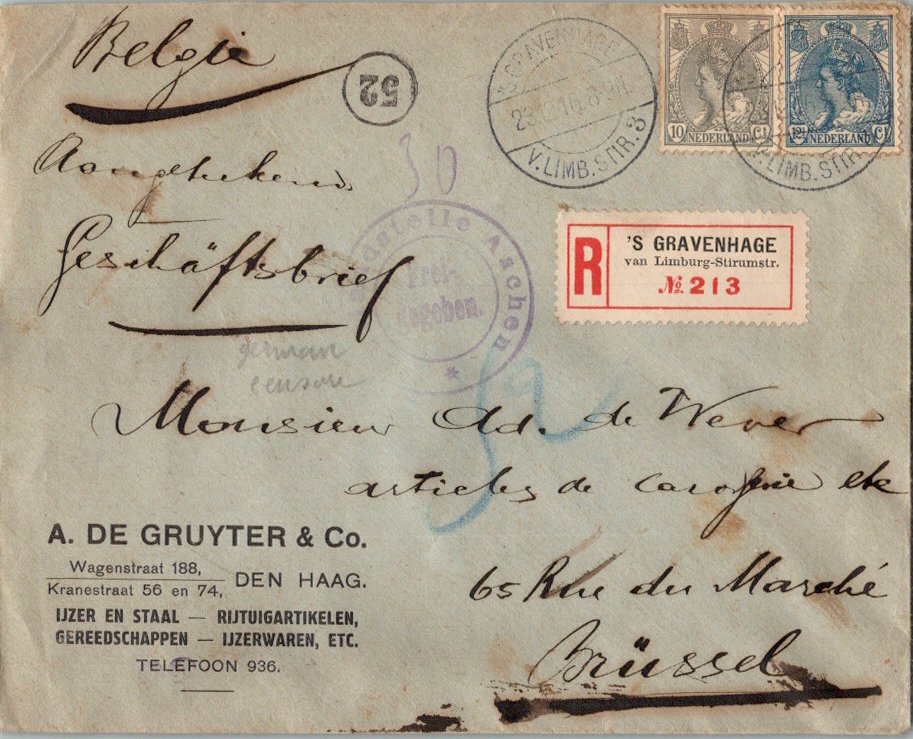 Belgie
52
'S GRAVENHAGE
V. LIMB. STIR. 3
10 NEDERLAND Ct
12½ NEDERLAND Ct
V. LIMB. STIR. 3
30
Aangetekend
Geschäftsbrief
Aachen
Frei-
gegeben.
R
'S GRAVENHAGE
van Limburg-Stirumstr.
№ 213
german
censure
Monsieur Ad. de Wever
articles de etc
65 Rue du Marché
Brüssel
A. DE GRUYTER & Co.
Wagenstraat 188,
Kranestraat 56 en 74, DEN HAAG.
IJZER EN STAAL — RIJTUIGARTIKELEN,
GEREEDSCHAPPEN — IJZERWAREN, ETC.
TELEFOON 936.